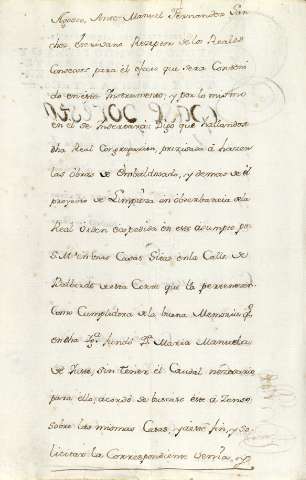 Agosto, Ante Manuel Fernandez San
chez Escrivano Receptor de los Reales
Consejos para el efecto que sera Conteni
do en este Instrumento, y por lo mismo
en el se insertará: Dijo que hallandose
dha Real Congregacion, precisada á hacer
las obras de Embaldosado, y demas de el
proyecto de Limpieza en observancia de la
Real Orden expedida en este asumpto por
S. M. en unas Casas Sitas en la Calle de
Valverde de esta Corte que la pertenecen
como Cumplidora de la buena Memoria qe.
en dha Iga. fundó Da. Maria Manuela
de sin tener el Caudal necesario
para ello; acordó de buscarle este á Zenso
sobre las mismas Casas, y a este fin, y so
licitar la Correspondiente y